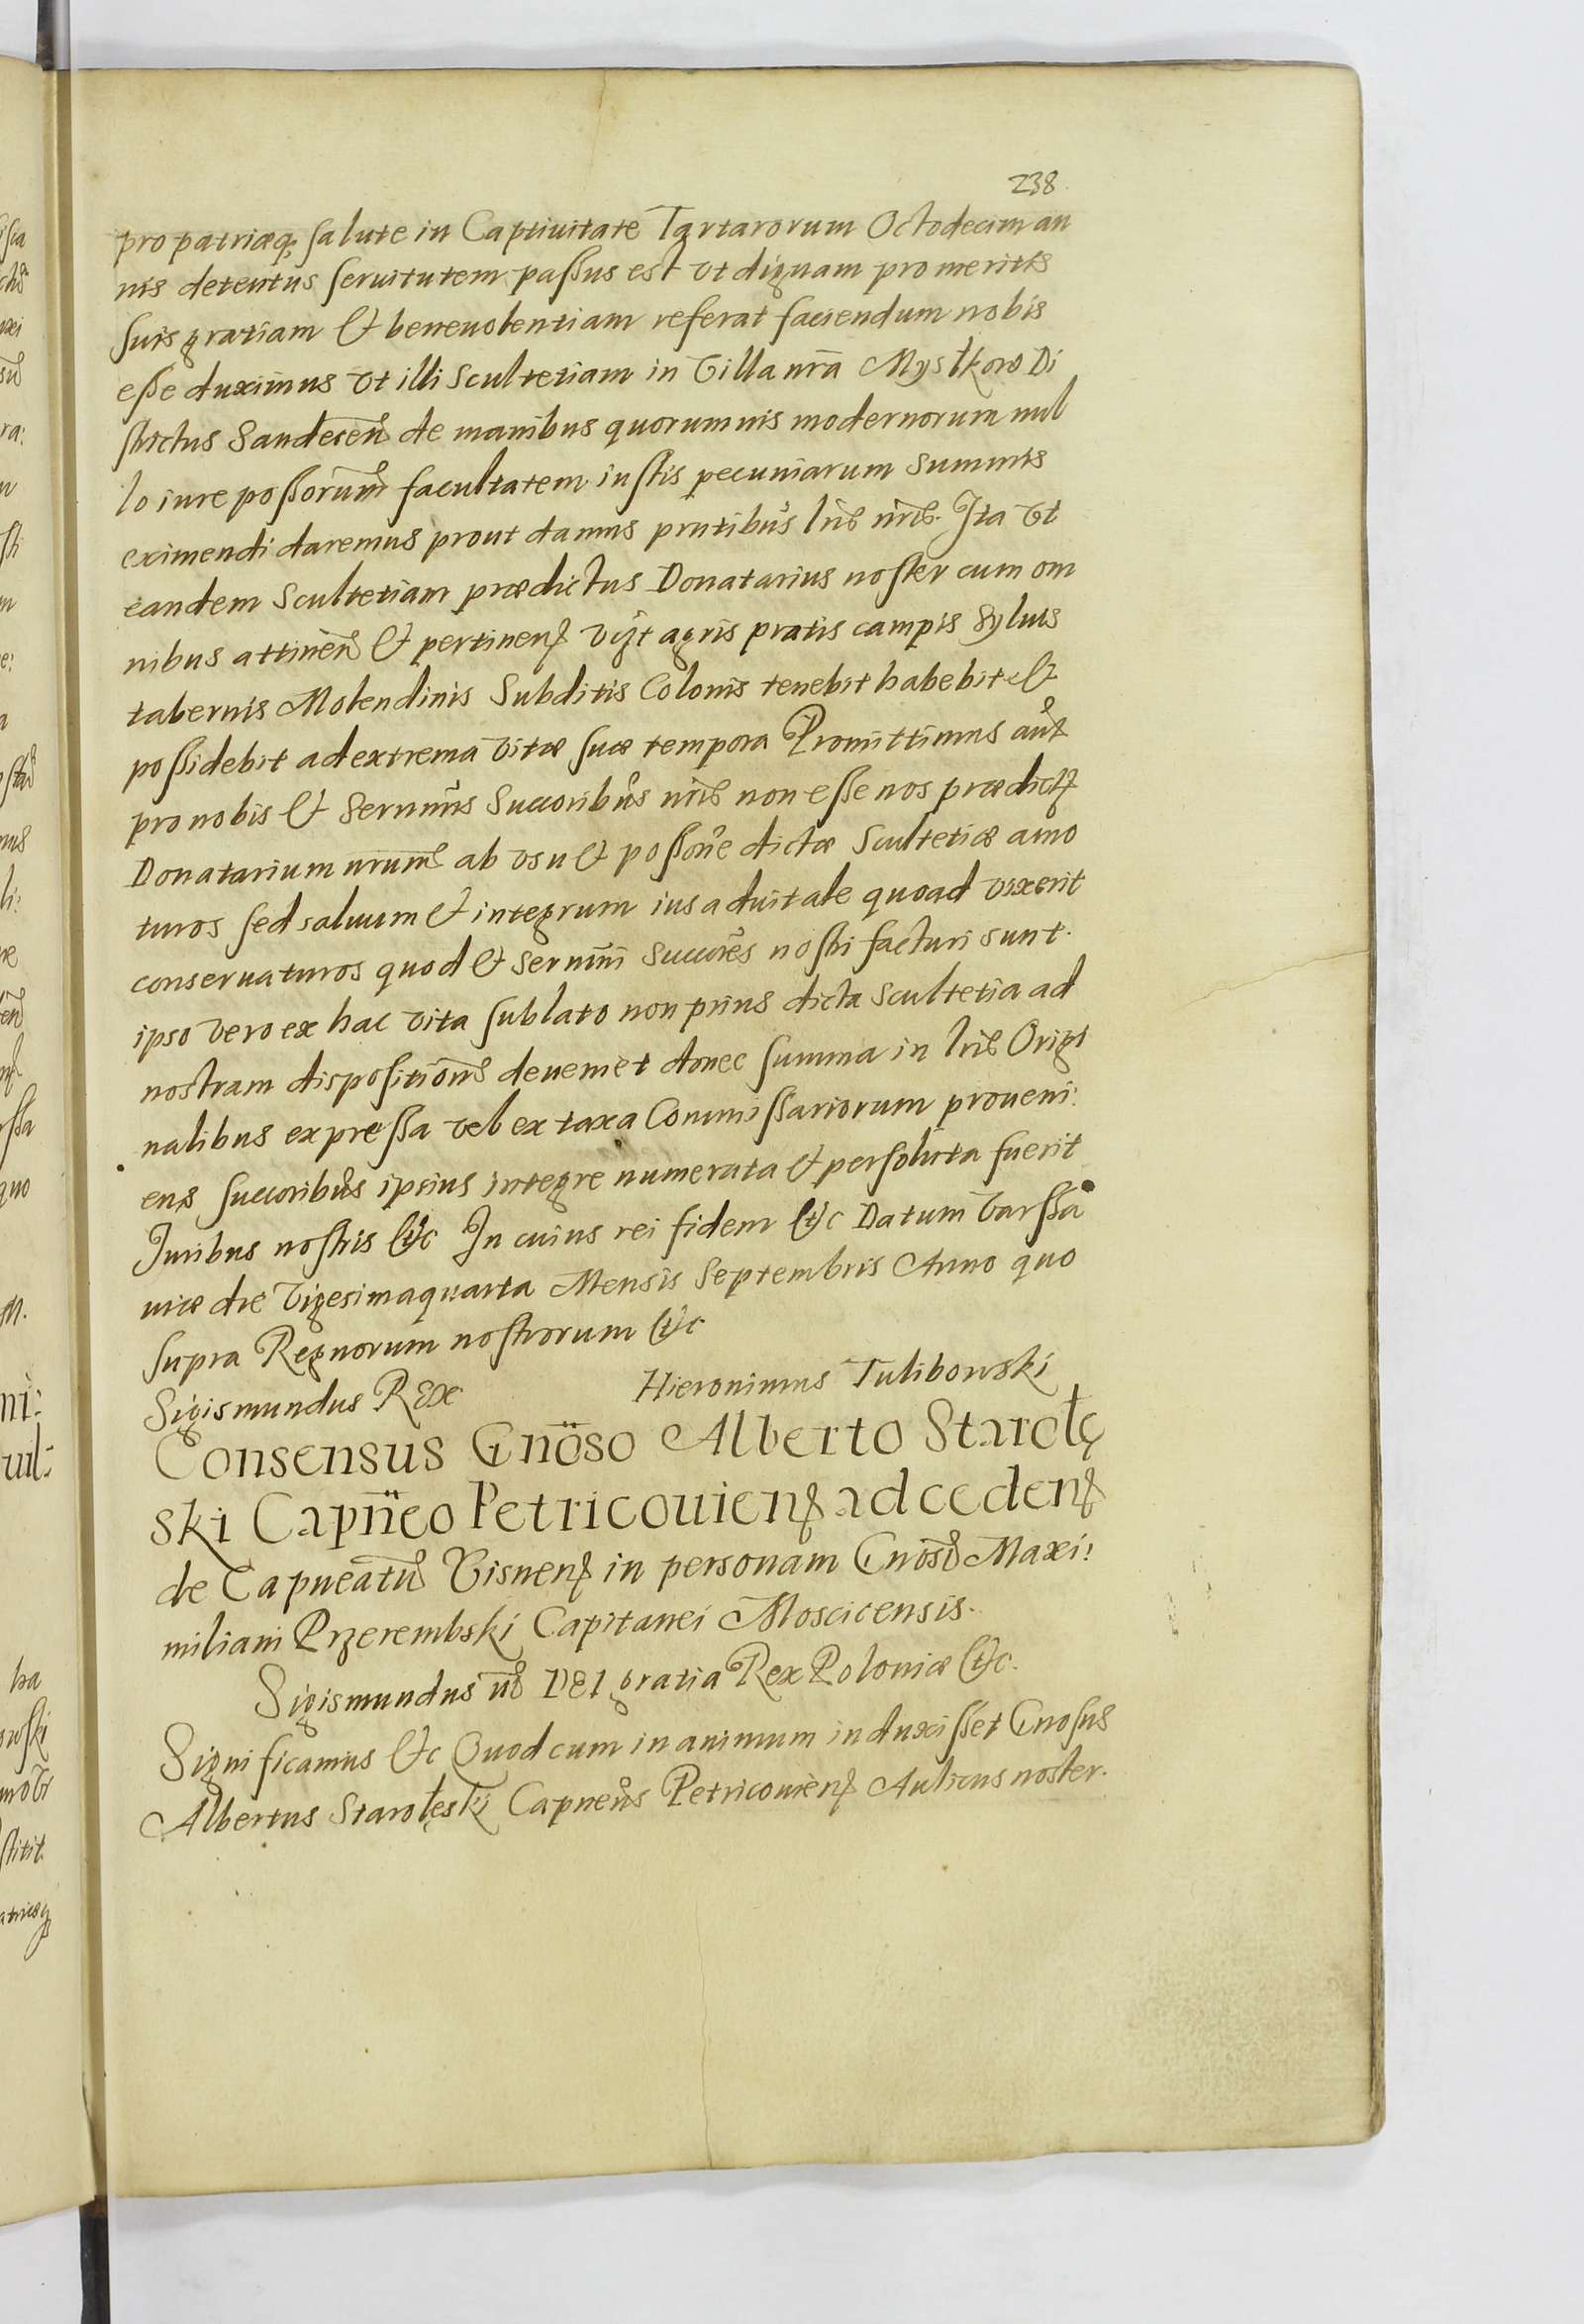 238.
pro patriæq; salute in Captiuitate Tartarorum Octodecim an
nis detentus seruitutem passus est vt dignam pro meritis
suis gratiam & beneuolentiam referat faciendum nobis
esse duximus vt illi Scultetiam in Villa nr̃a Mystkow Di
strictus Sandecen̄ de manibus quorumuis modernorum nul
lo iure possorum̄ facultatem iustis pecuniarum summis
eximendi daremus prout damus pn̄tibus lr̄is nr̄is. Ita vt
eandem Scultetiam prædictus Donatarius noster cum om
nibus attinen̄ & pertinen̄ vizt agris pratis campis syluis
tabernis Molendinis Subditis Colonis tenebit habebit &
possidebit ad extrema vitæ suæ tempora Promittimus aūt
pro nobis & Sernmīs Succoribūs nr̄is non esse nos prædict
Donatarium nrum̄ ab vsu & possone dictæ Scultetiæ amo
turos sed saluum & integrum ius aduitale quoad vixerit
conseruaturos quod & Sernmī Succores nostri facturi sunt.
ipso vero ex hac vita sublato non prius dicta Scultetia ad
nostram disposition̄ deueniet donec summa in lr̄is Origi
nalibus expressa vel ex taxa Commissariorum proueni:
ens succoribūs ipsius integre numerata & persoluta fuerit
Iuribus nostris &c In cuius rei fidem &c Datum Varssa
uiæ die Vigesimaquarta Mensis Septembris Anno quo
supra Regnorum nostrorum &c
Sigismundus Rex Hieronimus Tulibowski
Consensus Gnöso Alberto Starołę
ski Capn̈eo Petricouien ad ceden
de Capneatū Visnen in personam Gnosi Maxi:
miliani Przerembski Capitanei Moscicensis.
Sigismundus DEI gratia Rex Poloniæ &c.
Significamus &c Quod cum in animum induxisset Gnosus
Albertus Starołęski Capneūs Petricouien Aulicus noster.